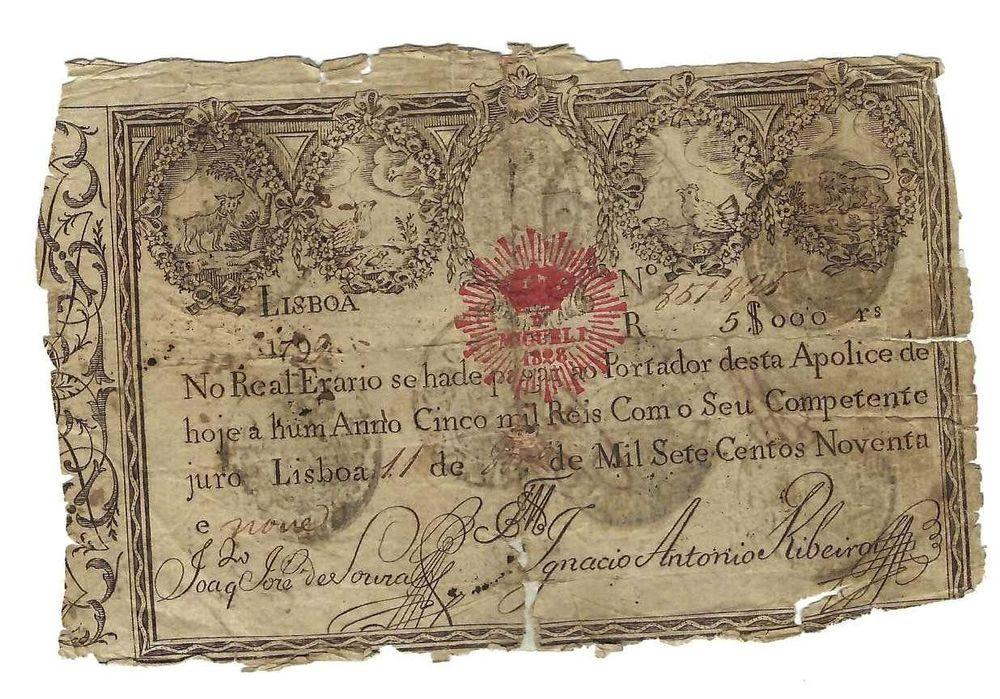 LISBOA
Nº 851825
179
R 5$000 rs
D
MIGUEL I
1828
No Real Erario se hade pagar ao Portador desta Apolice de
hoje a hum Anno Cinco mil Reis Com o Seu Competente
juro Lisboa 11 de de Mil Sete Centos Noventa
e nove
Joaq José de Souza
Ignacio Antonio Ribeiro